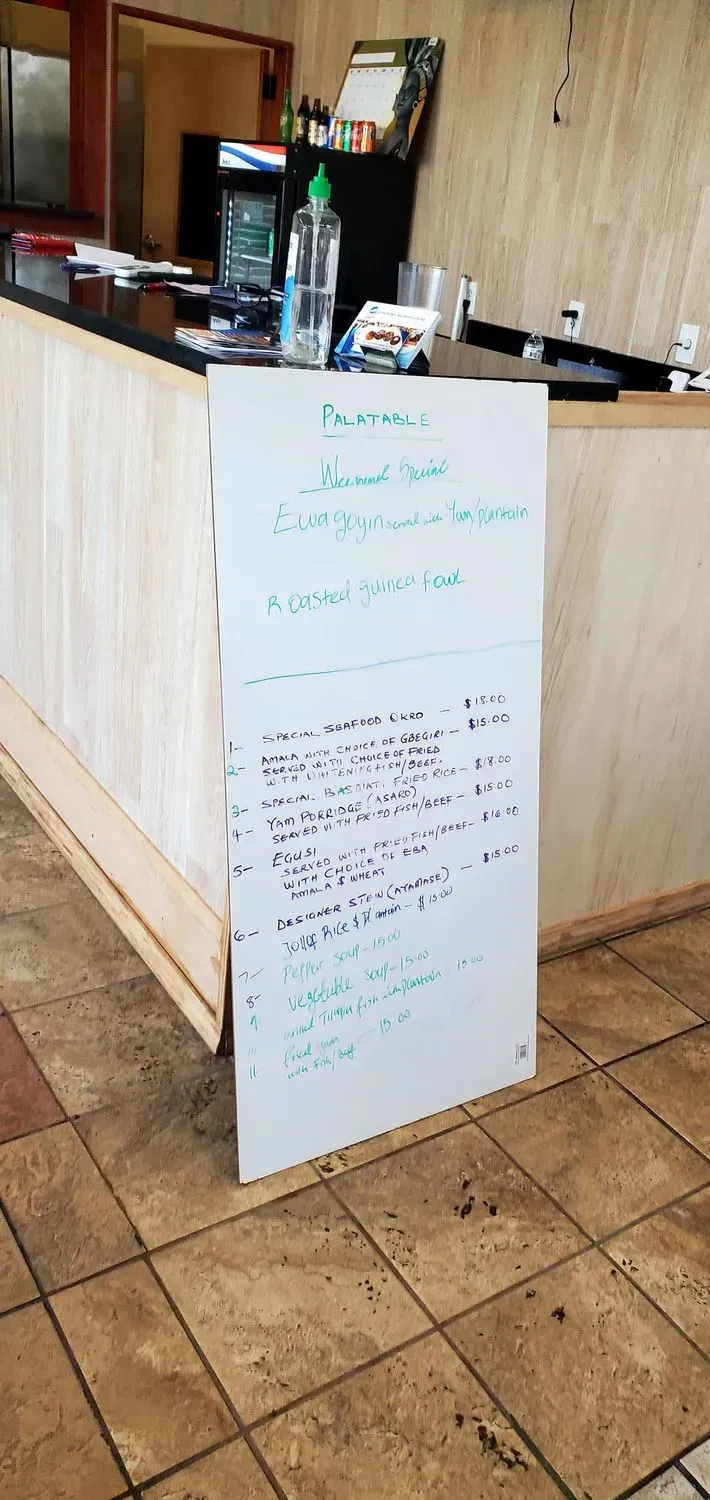 PALATABLE
Special
Ewagoyin served with Yum/plantain
Roasted guinea fowl
1- SPECIAL SEAFOOD OKRO - $18.00
2- AMALA WITH CHOICE OF GBEGIRI - $15.00
SERVED WITH CHOICE OF FRIED
WITH WHITENING FISH/BEEF.
3- SPECIAL BASMATI FRIED RICE - $18.00
4- YAM PORRIDGE (ASARO) - $15:00
SERVED WITH FRIED FISH/BEEF
5- EGUSI - $16:00
SERVED WITH FRIED FISH/BEEF
WITH CHOICE OF EBA
AMALA $ WHEAT
6- DESIGNER STEW (AYAMASE) - $15:00
Jollof RICE $ Plantain - $15:00
7- Pepper soup - 15.00
8- vegetable soup - 15.00
9 fish with plantain - 15 00
11 fried yum 15 00
with fish/Beef